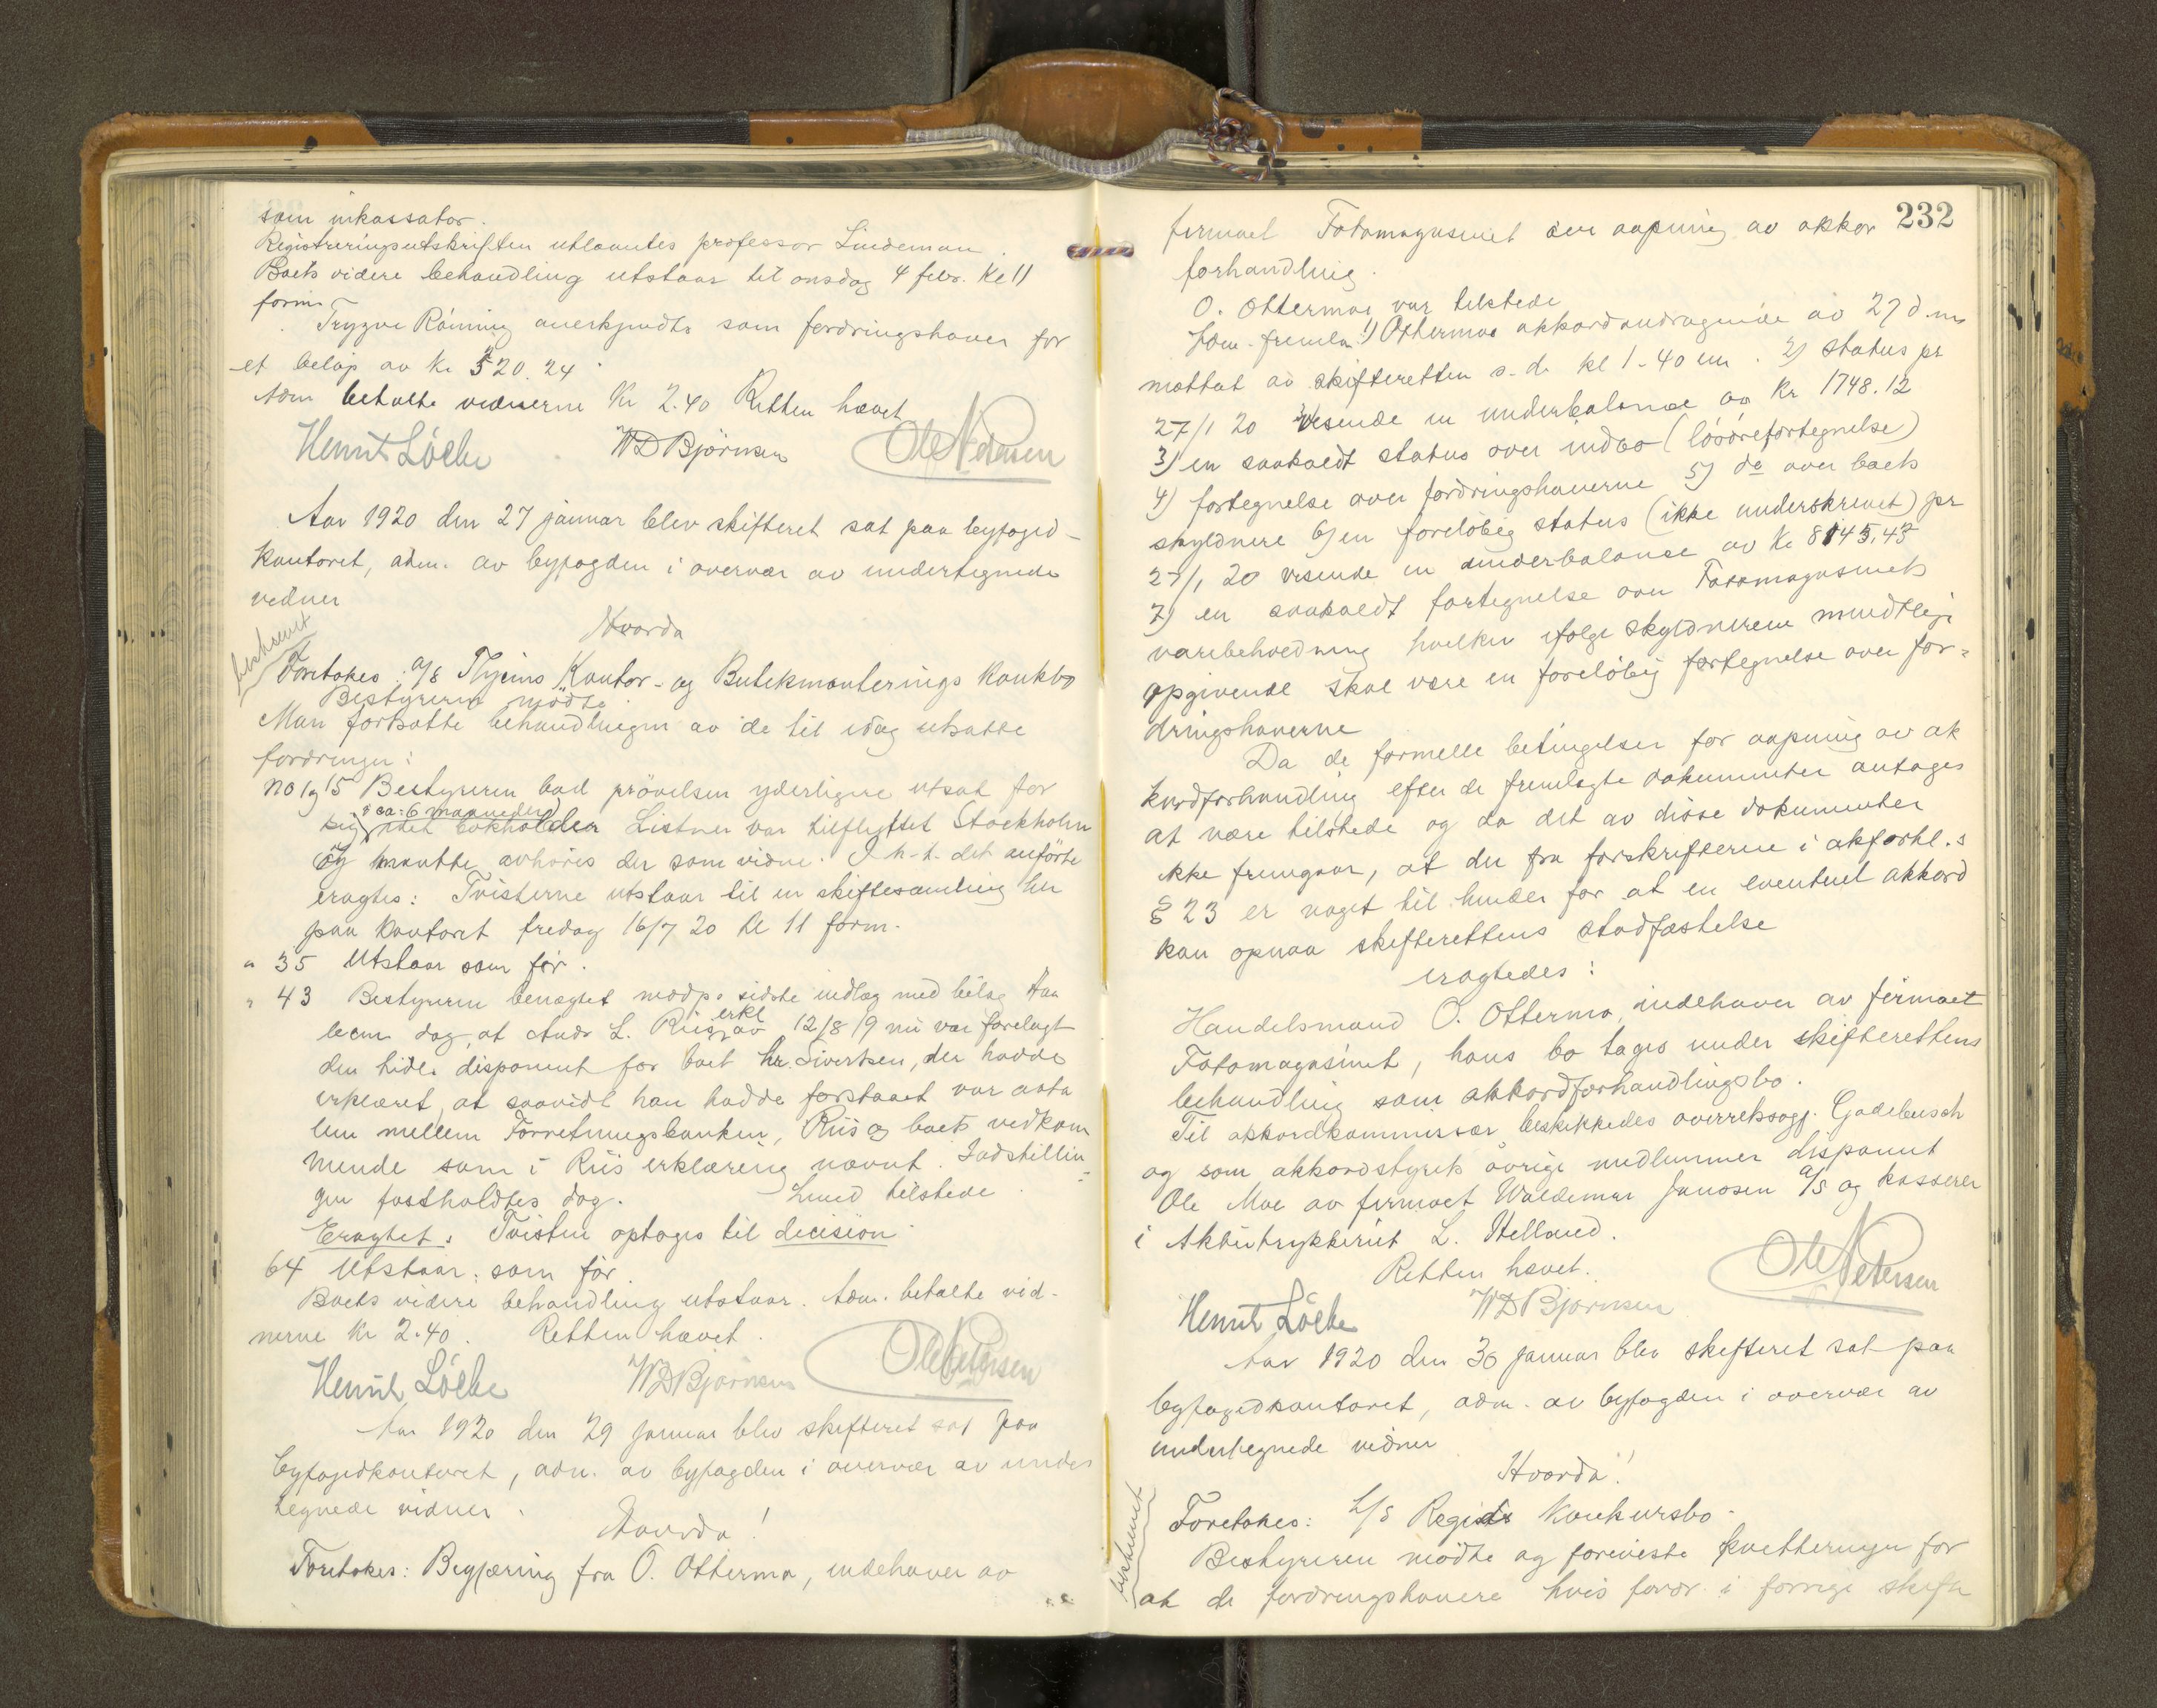 som inkassator.
Registreringsutskriften utlaantes professor Lindeman.
Boets videre behandling utstaar til onsdag 4 febr. Kl 11
form.
Trygve Röining anerkjendtes som fordringshaver for
et beløp av Kr 520.24
Adm betalte vidnerne Kr 2.40 Retten hævet
Henrik Lölke WD Björnsen Ole N Petersen
Aar 1920 den 27 januar blev skifteret sat paa byfoged-
kontoret, adm. av byfogden i overvær av undertegnede
vidner
Hvorda
beskrevet
Foretokes: A/S Thjems Kontor- og Butikmonterings konkbo
Bestyreren mødte.
Man fortsatte behandlingen av de til idag utsatte
fordringer:
No 1 og 15 Bestyreren bad prövelsen yderligere utsat for
ca: 6 maaneder
sig, idet bokholder Listner var tilflyttet Stockholm
og maatte avhöres der som vidne. I h.t. det anförte
eragtes: Tvisterne utstaar til en skiftesamling her
paa kontoret fredag 16/7 20 kl 11 form.
" 35 Utstaar som før.
" 43 Bestyreren benægtet modp.s sidste indlæg med bilag. Han
erkl
bem dog, at Andr L. Riis, av 12/8 19 nu var forelagt
den tidl. disponent for boet hr. Sivertsen, der hadde
erklæret, at saavidt han hadde forstaaet var avta
len mellem Forretningsbanken, Riis og boets vedkom
mende som i Riis erklæring nævnt. Indstillin-
gen fastholdtes dog. Lund tilstede.
Eragtet: Tvisten optages til decision.
64 Utstaar: som før.
Boets videre behandling utstaar. Adm. betalte vid-
nerne Kr 2.40. Retten hævet.
Henrik Lölke WD Björnsen Ole N Petersen
Aar 1920 den 29 januar blev skifteret sat paa
byfogedkontoret, adm. av byfogden i overvær av under
tegnede vidner.
Hvorda!
Foretokes: Begjæring fra O. Otterma, indehaver av
232
firmaet Fotomagasinet om aapning av akkor
forhandling.
O. Ottermas var tilstede
Adm. fremla 1) Ottermas akkordandragende av 27 d.ms
mottat av skifteretten s.d. kl 1.40 em. 2) status pr
27/1 20 visende en underbalance av Kr 1748.12
3) en saakaldt status over indbo (lösörefortegnelse)
4) fortegnelse over fordringshaverne 5) do over boets
skyldnere 6) en forelöbig status (ikke underskrevet) pr
27/1 20 visende en underbalance av Kr 8145,43
7) en saakaldt fortegnelse over Fotomagasinets
varebeholdning hvilken ifølge skyldnerens mundtlige
opgivende skal være en forelöbig fortegnelse over for-
dringshaverne
Da de formelle betingelser for aapning av ak
kordforhandling efter de fremlagte dokumenter antages
at være tilstede og da det av disse dokumenter
ikke fremgaar, at der fra forskrifterne i akforhl.s
§ 23 er noget til hinder for at en eventuel akkord
kan opnaa skifterettens stadfæstelse
eragtedes:
Handelsmand O. Otterma, indehaver av firmaet
Fotomagasinet, hans bo tages under skifterettens
behandling som akkordforhandlingsbo.
Til akkordkommissær beskikkedes overretssagf. Gadebusch
og som akkordstyrets övrige medlemmer disponent
Ole Moe av firmaet Waldemar Janssen A/S og kasserer
i Aktietrykkeriet L. Helland.
Retten hævet.
Henrik Lölke WD Björnsen Ole N Petersen
Aar 1920 den 30 januar blev skifteret sat paa
byfogedkontoret, adm. av byfogden i overvær av
undertegnede vidner
Hvorda!
beskrevet
Foretokes: L/S Regids konkursbo.
Bestyreren mödte og foreviste kvitteringer for
at de fordringshavere hvis fordr. i forrige skifte